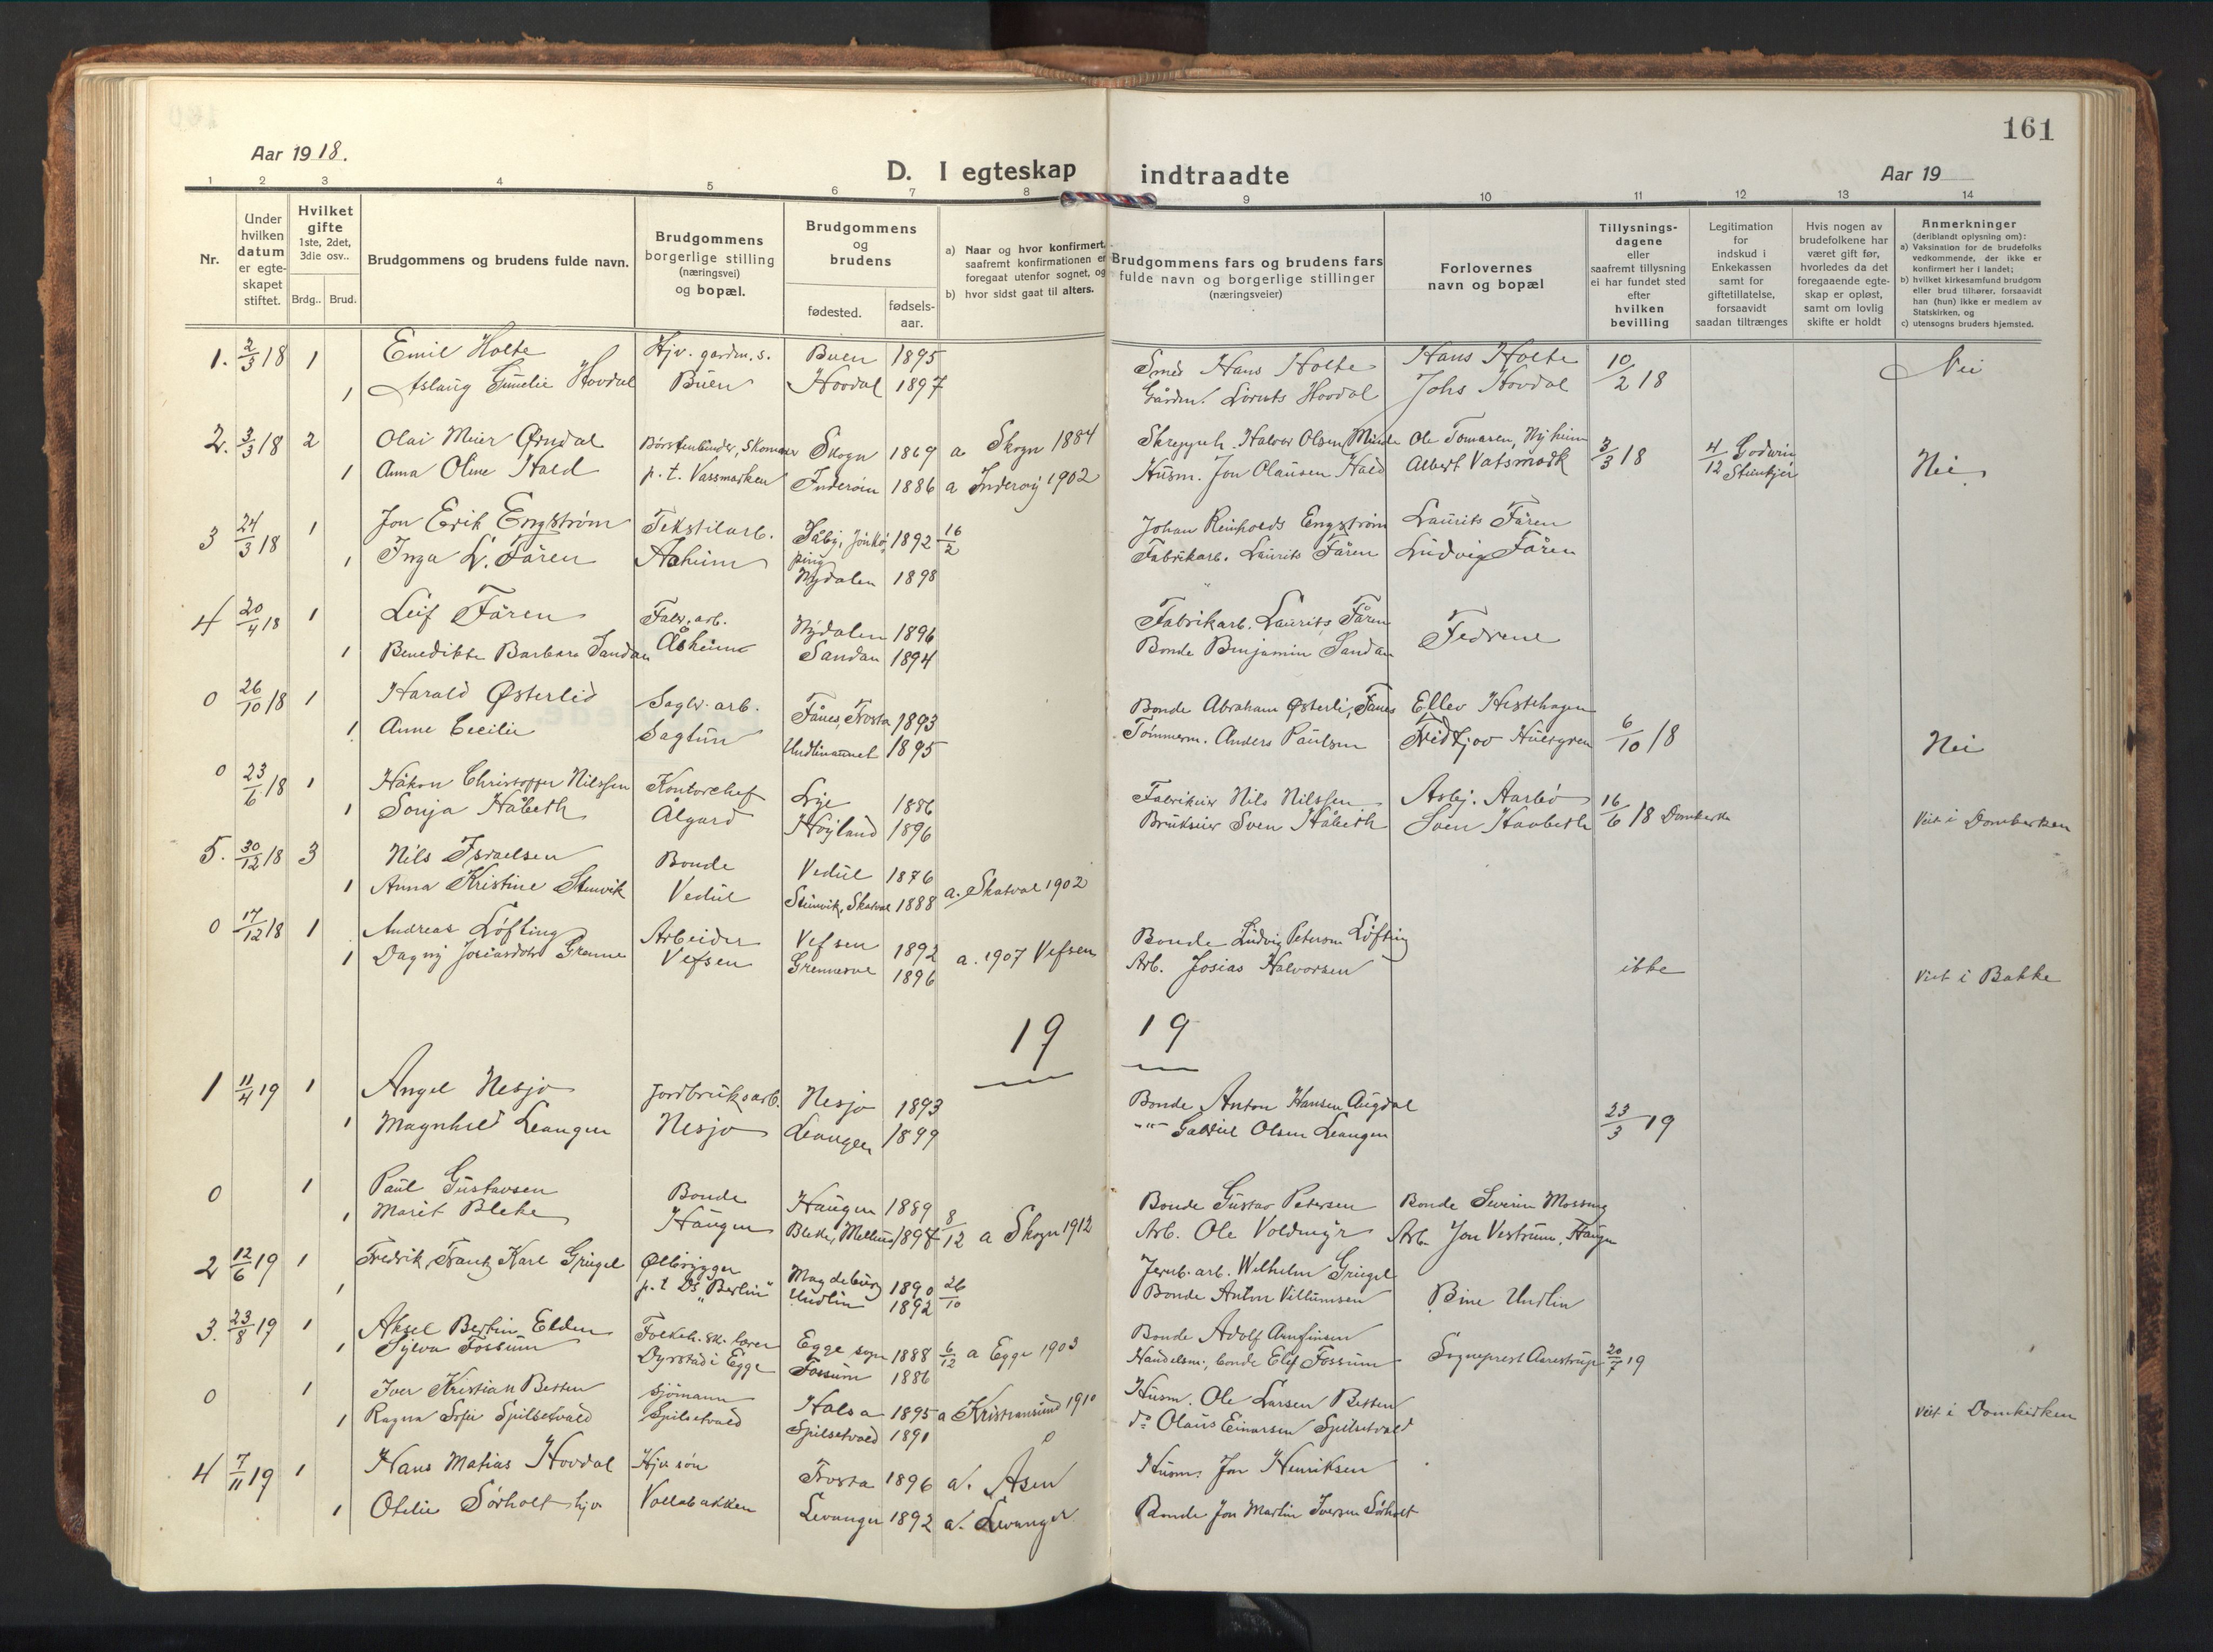 161
Aar 1918.
D. I egteskap indtraadte
Aar 19
1 2 3 4 5 6 7 8 9 10 11 12 13 14
Nr.
Under hvilken datum er egteskapet stiftet.
Hvilket gifte 1ste, 2det, 3die osv..
Brdg.. Brud.
Brudgommens og brudens fulde navn.
Brudgommens borgerlige stilling (næringsvei) og bopæl.
Brudgommens og brudens
fødested.
fødsels-aar.
a) Naar og hvor konfirmert, saafremt konfirmationen er foregaat utenfor sognet, og
b) hvor sidst gaat til alters.
Brudgommens fars og brudens fars fulde navn og borgerlige stillinger (næringsveier)
Forlovernes navn og bopæl
Tillysningsdagene eller saafremt tillysning ei har fundet sted efter hvilken bevilling
Legitimation for indskud i Enkekassen samt for giftetillatelse, forsaavidt saadan tiltrænges
Hvis nogen av brudefolkene har været gift før, hvorledes da det foregaaende egteskap er opløst, samt om lovlig skifte er holdt
Anmerkninger (deriblandt oplysning om):
a) Vaksination for de brudefolks vedkommende, der ikke er konfirmert her i landet;
b) hvilket kirkesamfund brudgom eller brud tilhører, forsaavidt han (hun) ikke er medlem av Statskirken, og
c) utensogns bruders hjemsted.
1. 2/3 18 1 Emil Holte Hjv. gardm. s. Buen 1895 Smed Hans Holte Hans Holte 10/2 18 Nei
1 Aslaug Hovdal Buen Hovdal 1897 Gårdm. Lornts Hovdal Johs Hovdal
2. 3/3 18 2 Olai Meier Ørndal Børstenbinder, Skomaker Skogn 1869 a Skogn 1884 Halvor Olsen Ole Tomasen, Nyheim 3/3 18 4/12 Nei
1 Anna Oline Hald p. t. Vassmarken Inderøen 1886 a Inderøy 1902 Husm. Jon Olausen Hald Albert Vatsmark
3 24/3 18 1 Jon Erik Engström Tekstilarb. Säby, Jönköping 1892 16/2 Johan Reinholds Engström Laurits Fåren
1 Inga L. Fåren Åsheim Nydalen 1898 Fabrikarb. Laurits Fåren Ludvig Fåren
4 20/4 18 1 Leif Fåren Fabr. arb. Nydalen 1896 Fabrikarb. Laurits Fåren Fedrene
1 Benedikte Barbara Sandau Åsheim Sandau 1894 Bonde Benjamin Sandau
0 26/10 18 1 Harald Østerlid Sagbr. arb. Fånes, Frosta 1893 Bonde Abraham Østerli, Fånes Ellev Hestehagen
1 Anne Cecilie Sagtun 1895 Tømmerm. Anders Paulsen Fridtjov Hultgren 6/10 18 Nei
0 23/6 18 1 Håkon Christoffer Nilssen Kontorchef Lye 1886 Fabrikeier Nils Nilssen Asbj. Aarbø 16/6 18
1 Sonja Håbeth Ålgård Høyland 1896 Brukseier Sven Håbeth Sven Haabeth Viet i Domkirken
5. 30/12 18 3 Nils Israelsen Bonde Vedul 1876
1 Anna Kristine Stenvik Vedul Stenvik, Skatval 1888 a. Skatval 1902
0 17/12 18 1 Andreas Løfting Arbeider Vefsen 1892 Bonde Ludvig Petersen Løfting
1 Dagny Josiasdotr Grenne Vefsen 1896 a. 1907 Vefsen Arb. Josias Halvorsen ikke Viet i Bakke
19 19
1 11/4 19 1 Angel Nesjø Jordbruksarb. Nesjø 1893 Bonde Anton Hansen Augdal 23/3 19
1 Magnhild Leangen Nesjø Leangen 1899 -"- Gabriel Olsen Leangen
0 1 Paul Gustavsen Bonde Haugen 1889 Bonde Gustav Petersen Bonde Severin Mossing
1 Marit Bleke Haugen 8/12 a Skogn 1912 Arb. Ole Voldmyr Arb. Jon Vestrum, Haugen
2 12/6 19 1 Fredrik Frantz Karl Griegel Ølbrygger Magdeburg 1890 26/10 Jernb. arb. Wilhelm Griegel
1 p. t. Ds "Berlin" Undlin 1892 Bonde Anton Villumsen Bine Undlin
3. 23/8 19 1 Aksel Bertin Elden Folkeh. sk. lærer Egge sogn 1888 6/12 a Egge 1903 Bonde Adolf Arnfinsen
1 Sylva Fossum Dyrstad i Egge Fossum 1886 Handelsm., bonde Elef Fossum Sogneprest Aarestrup 20/7 19
0 1 Iver Kristian Betten Sjømann Halsa 1895 a Kristiansund 1910 Husm. Ole Larsen Betten
1 Ragna Sofie Spilsetvald Spilsetvald Spilsetvald 1891 do Olaus Einarsen Spilsetvald Viet i Domkirken
4 7/11 19 1 Hans Matias Hovdal Hjv. søn Frosta 1896 a. Åsen Husm. Jon Henriksen
1 Otelie Sørholt hjv Vollabakken Levanger 1892 a. Levanger Bonde Jon Martin Iversen Sørholt